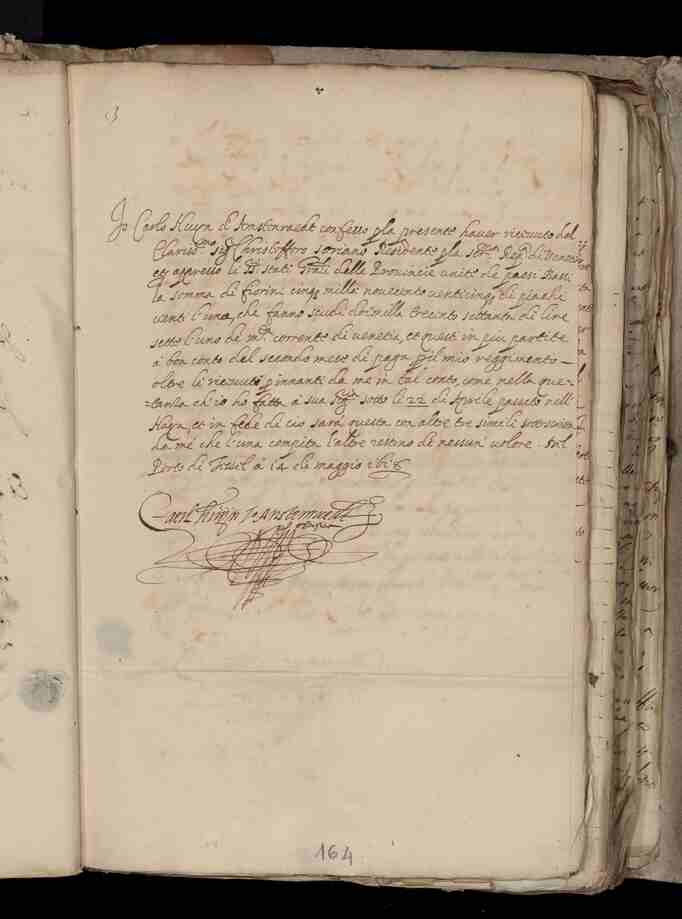 3
Io Carlo Huyn d'Amstenraedt confesso p la presente haver ricevuto dal
Clariss.mo Sig.r Christoffero Soriano Residente p la Ser.ma Rep.ca di Venetia
et appresso li SS.ri Stati G'rali delle Provincie unite de paesi Bassi
la somma di fiorini cinq3 milla novecento venticinq3 di piachi
venti l'uno, che fanno scudi doi milla trecinto settanta di lire
sette l'uno de m.da corrente di venetia, et questi in piu partite
a bon conto del secondo mese di paga p il mio reggimento
oltre li ricevuti p innanti da me in tal conto, come nella que-
tanza ch'io ho fatta a sua Sig.ria sotto li 22 di Aprile passato nell'
Haya, et in fede di cio sarà questa con altre tre simili sottoscritta
da me che l'una compita l'altre restino de nessun valore. Nel
Porto di Texel a i 4 de maggio 1618
Caerl Huijn van Amstenraedt
164